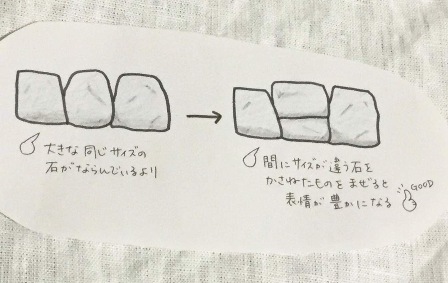 大きな同じサイズの
石がならんでいるより
間にサイズが違う石を
かさねたものをまぜると
表情が豊かになる
GOOD